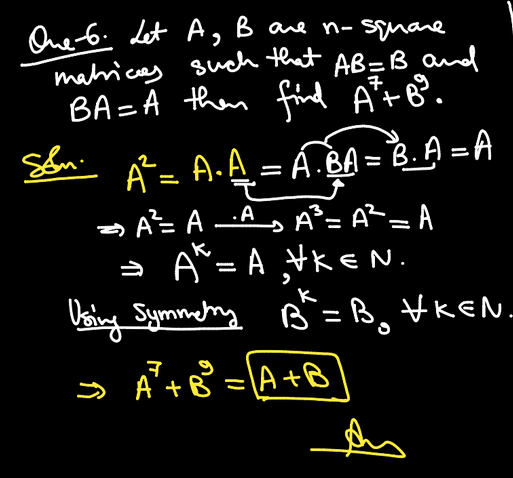 Que-6. Let A, B are n-square
matrices such that AB=B and
BA=A then find A⁷+B⁹.
Soln. A² = A.A = A.BA = B.A = A
⇒ A² = A —.A→ A³ = A² = A
⇒ Aᴷ = A, ∀ K ∈ N.
Using Symmetry Bᴷ = B, ∀ K ∈ N.
⇒ A⁷ + B⁹ = A + B
Ans